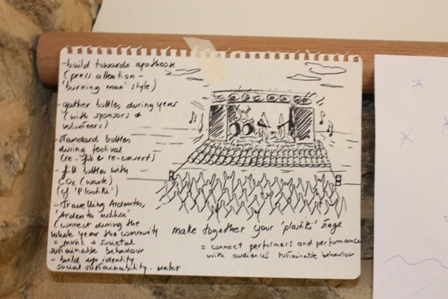 - build towards apotheose
(press attention -
'burning man' style)
- gather bottles during years
(with sponsors &
volunteers)
- standard bottles
during festival
(re-fill & re-convert)
- fill bottles with
- Travelling Ardentes,
(connect during the
whole year the community
= music + societal
sustainable behaviour
- build up identity
social sustainability - water
make together your 'plastic' stage
= connect performers and performance
with audience' sustainable behaviour